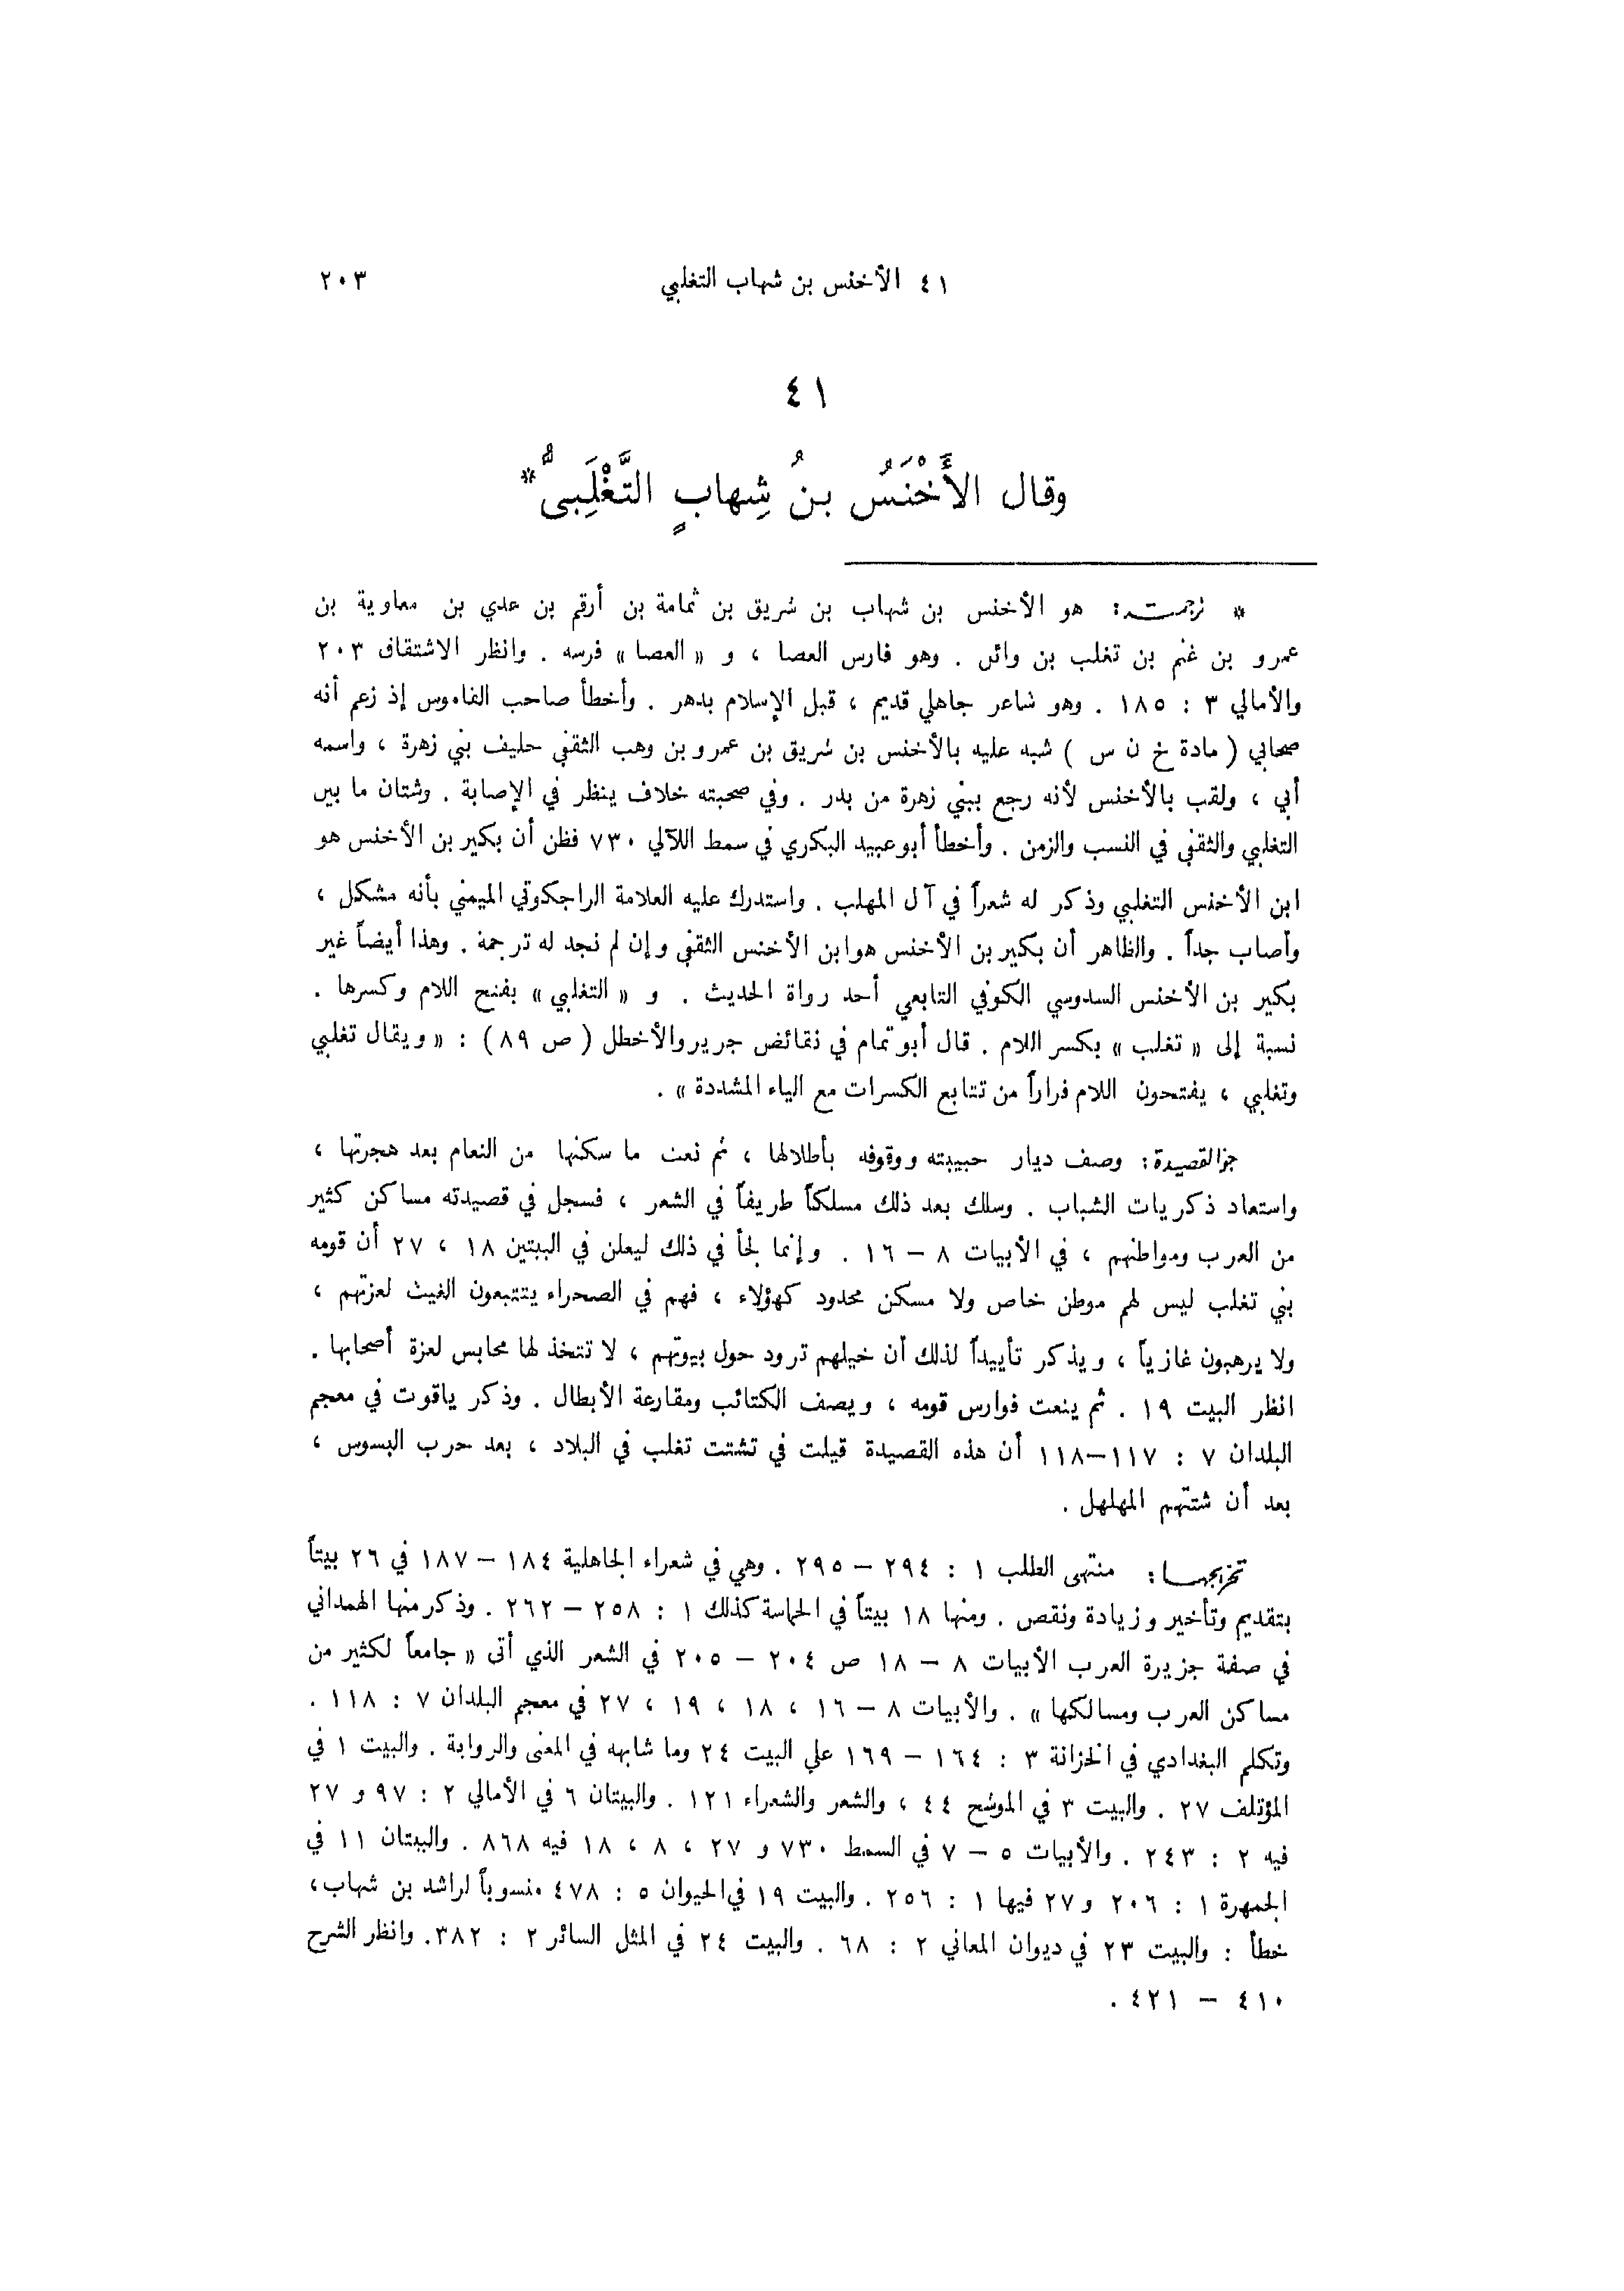 ٤١ الأخنس بن شهاب التغلبي ٢٠٣
٤١
وقال الأَخْنَسُ بنُ شِهابٍ التَّغْلَِبىُّ*
* ترجمته: هو الأخنس بن شهاب بن شريق بن ثمامة بن أرقم بن عدي بن معاوية بن
عمرو بن غنم بن تغلب بن وائل . وهو فارس العصا ، و « العصا » فرسه . وانظر الاشتقاق ٢٠٣
والأمالي ٣ : ١٨٥ . وهو شاعر جاهلي قديم ، قبل الإسلام بدهر . وأخطأ صاحب القاموس إذ زعم أنه
صحابي ( مادة خ ن س ) شبه عليه بالأخنس بن شريق بن عمرو بن وهب الثقفي حليف بني زهرة ، واسمه
أبي ، ولقب بالأخنس لأنه رجع ببني زهرة من بدر . وفي صحبته خلاف ينظر في الإصابة . وشتان ما بين
التغلبي والثقفي في النسب والزمن . وأخطأ أبو عبيد البكري في سمط اللآلي ٧٣٠ فظن أن بكير بن الأخنس هو
ابن الأخنس التغلبي وذكر له شعراً في آل المهلب . واستدرك عليه العلامة الراجكوتي الميمني بأنه مشكل ،
وأصاب جداً . والظاهر أن بكير بن الأخنس هو ابن الأخنس الثقفي وإن لم نجد له ترجمة . وهذا أيضاً غير
بكير بن الأخنس السدوسي الكوفي التابعي أحد رواة الحديث . و « التغلبي » بفتح اللام وكسرها .
نسبة إلى « تغلب » بكسر اللام . قال أبو تمام في نقائض جرير والأخطل ( ص ٨٩ ) : « ويقال تغلبي
وتغلبي ، يفتحون اللام فراراً من تتابع الكسرات مع الياء المشددة » .
جو القصيدة: وصف ديار حبيبته ووقوفه بأطلالها ، ثم نعت ما سكنها من النعام بعد هجرتها ،
واستعاد ذكريات الشباب . وسلك بعد ذلك مسلكاً طريفاً في الشعر ، فسجل في قصيدته مساكن كثير
من العرب ومواطنهم ، في الأبيات ٨ – ١٦ . وإنما لجأ في ذلك ليعلن في البيتين ١٨ ، ٢٧ أن قومه
بني تغلب ليس لهم موطن خاص ولا مسكن محدود كهؤلاء ، فهم في الصحراء يتتبعون الغيث لعزتهم ،
ولا يرهبون غازياً ، ويذكر تأييداً لذلك أن خيلهم ترود حول بيوتهم ، لا تتخذ لها محابس لعزة أصحابها .
انظر البيت ١٩ . ثم ينعت فوارس قومه ، ويصف الكتائب ومقارعة الأبطال . وذكر ياقوت في معجم
البلدان ٧ : ١١٧–١١٨ أن هذه القصيدة قيلت في تشتت تغلب في البلاد ، بعد حرب البسوس ،
بعد أن شتتهم المهلهل .
تخريجها: منتهى الطلب ١ : ٢٩٤ – ٢٩٥ . وهي في شعراء الجاهلية ١٨٤ – ١٨٧ في ٢٦ بيتاً
بتقديم وتأخير وزيادة ونقص . ومنها ١٨ بيتاً في الحماسة كذلك ١ : ٢٥٨ – ٢٦٢ . وذكر منها الهمداني
في صفة جزيرة العرب الأبيات ٨ – ١٨ ص ٢٠٤ – ٢٠٥ في الشعر الذي أتى « جامعاً لكثير من
مساكن العرب ومسالكها » . والأبيات ٨ – ١٦ ، ١٨ ، ١٩ ، ٢٧ في معجم البلدان ٧ : ١١٨ .
وتكلم البغدادي في الخزانة ٣ : ١٦٤ – ١٦٩ على البيت ٢٤ وما شابهه في المعنى والرواية . والبيت ١ في
المؤتلف ٢٧ . والبيت ٣ في الموشح ٤٤ ، والشعر والشعراء ١٢١ . والبيتان ٦ في الأمالي ٢ : ٩٧ و ٢٧
فيه ٢ : ٢٤٣ . والأبيات ٥ – ٧ في السمط ٧٣٠ و ٢٧ ، ٨ ، ١٨ فيه ٨٦٨ . والبيتان ١١ في
الجمهرة ١ : ٢٠٦ و ٢٧ فيها ١ : ٢٥٦ . والبيت ١٩ في الحيوان ٥ : ٤٧٨ منسوباً لراشد بن شهاب،
خطأ : والبيت ٢٣ في ديوان المعاني ٢ : ٦٨ . والبيت ٢٤ في المثل السائر ٢ : ٣٨٢. وانظر الشرح
٤١٠ – ٤٢١ .